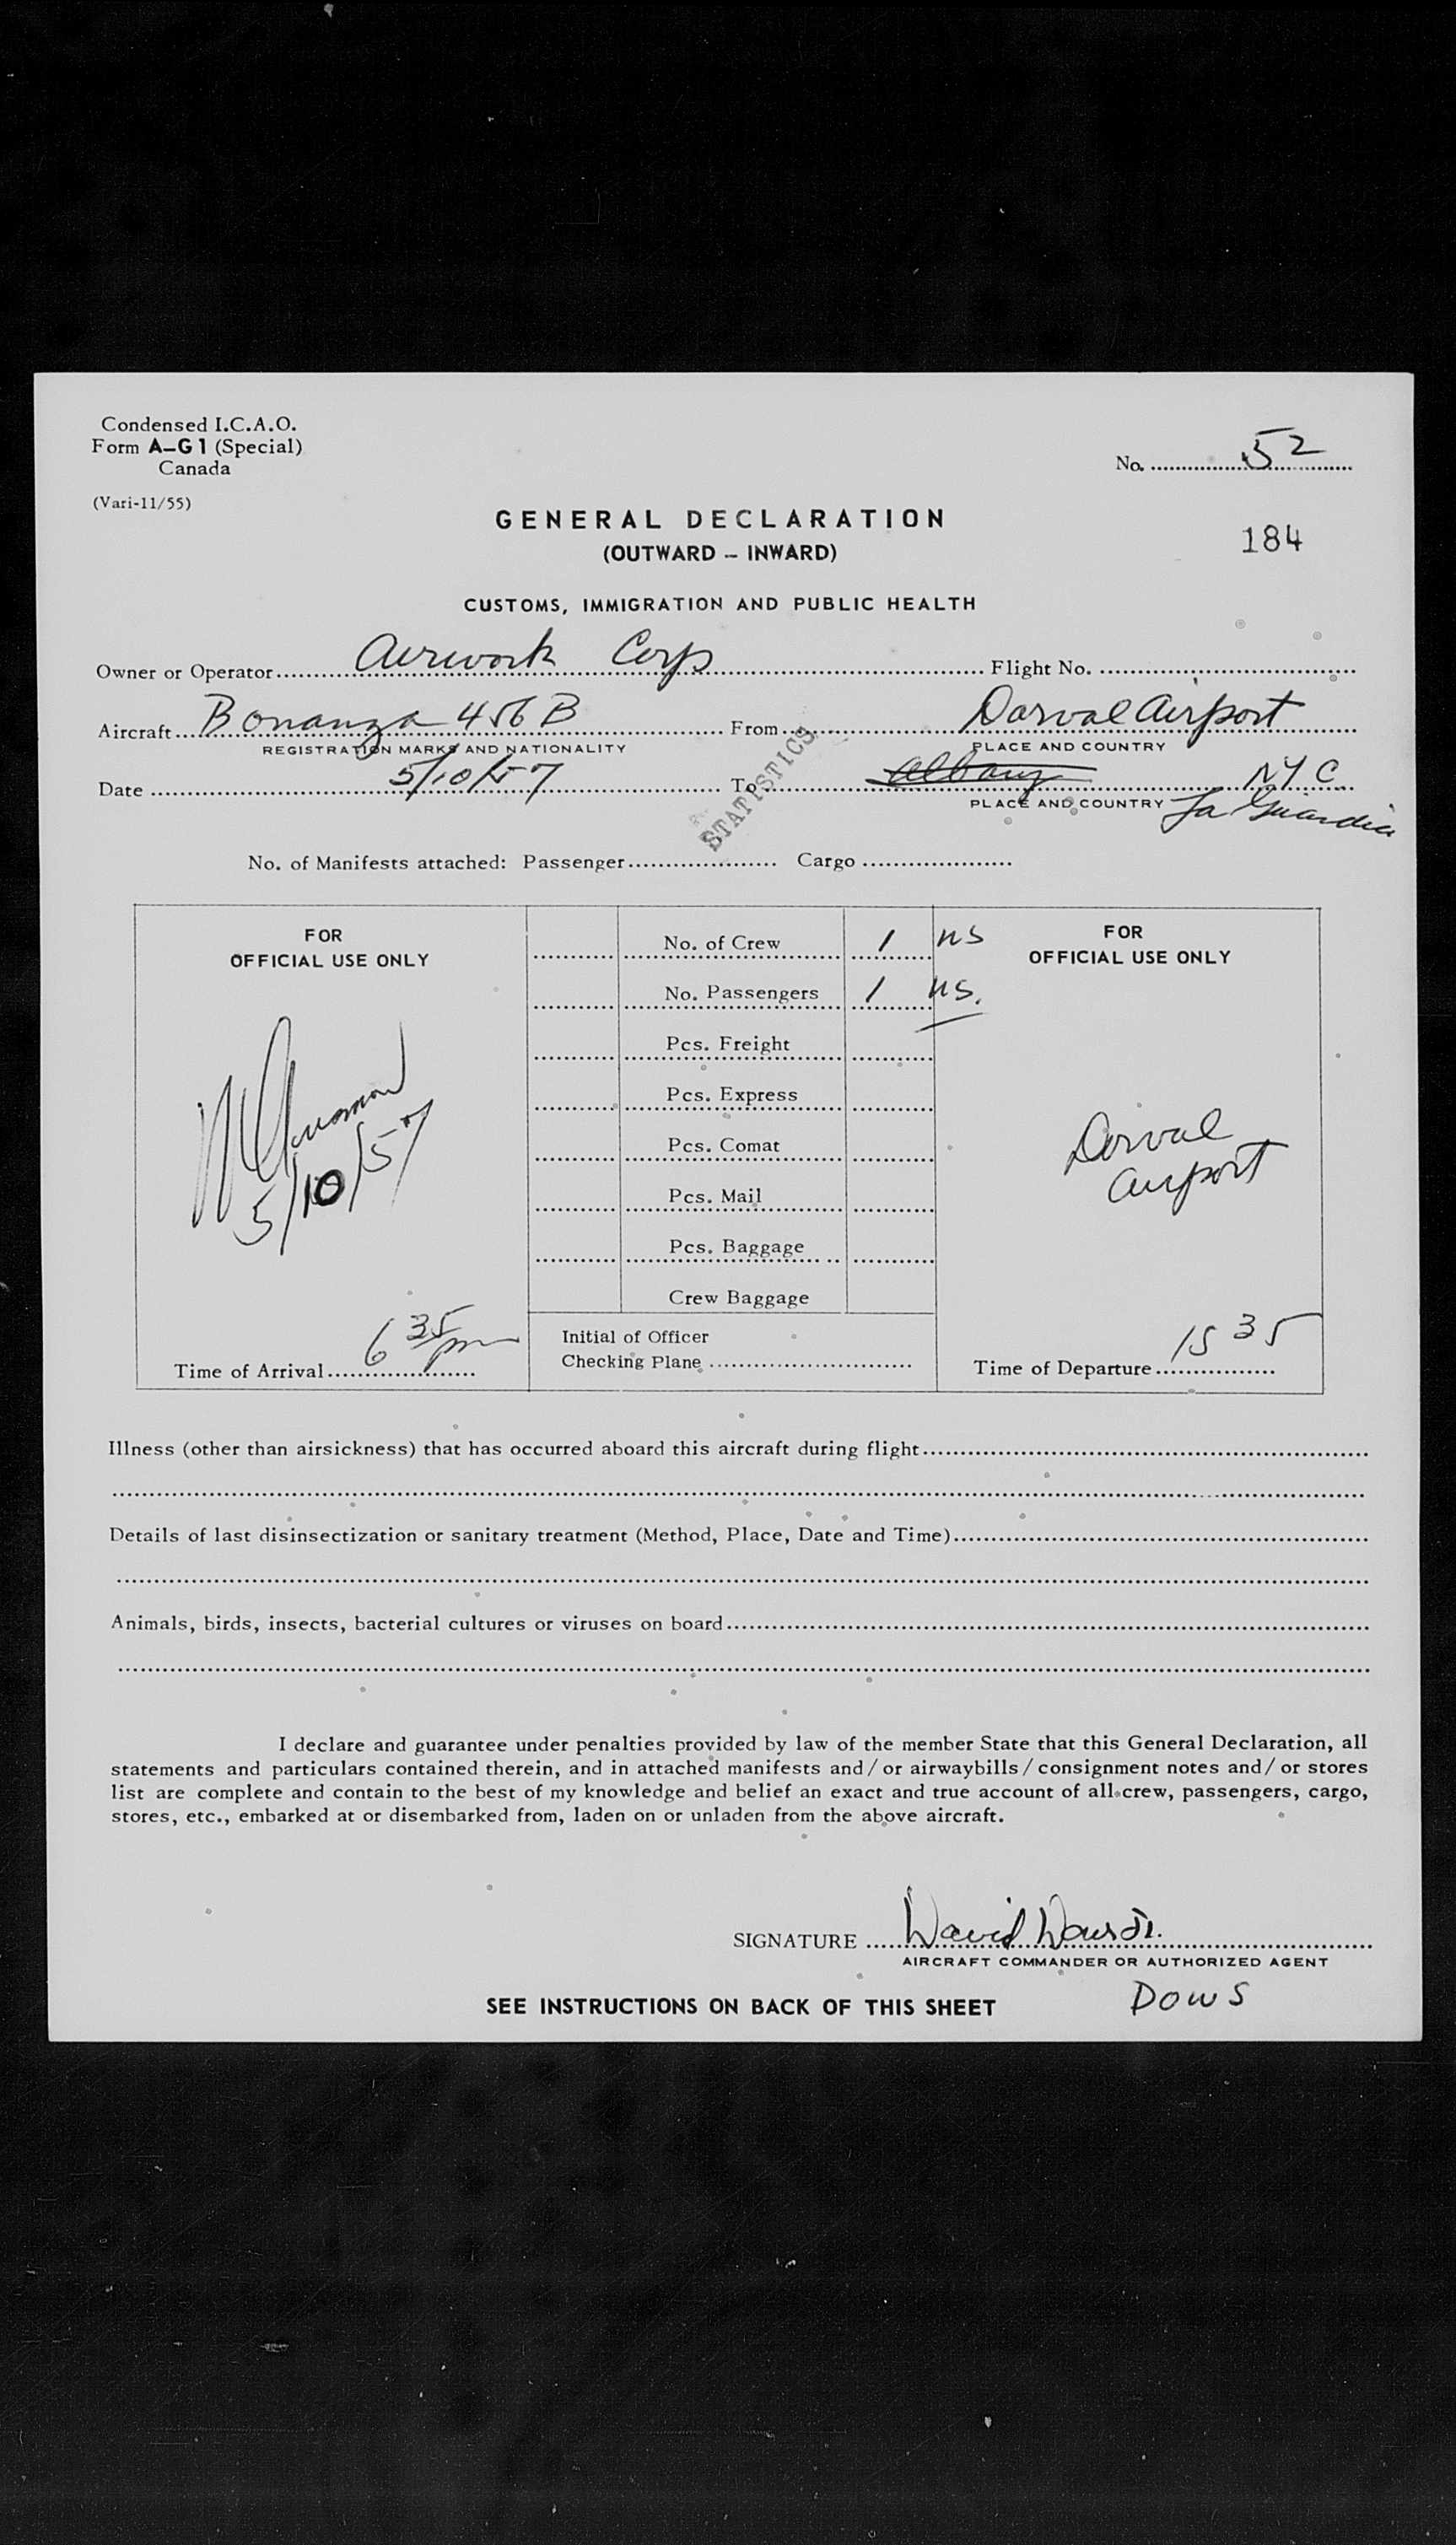 Condensed I.C.A.O.
Form A-G1 (Special)
Canada
(Vari-11/55)
No. 52
GENERAL DECLARATION
(OUTWARD - INWARD)
184
CUSTOMS, IMMIGRATION AND PUBLIC HEALTH
Owner or Operator Airwork Corp Flight No.
Aircraft Bonanza 456B From Dorval Airport
REGISTRATION MARKS AND NATIONALITY PLACE AND COUNTRY
Date 5/10/57 To Albany NYC
PLACE AND COUNTRY La Guardia
STATISTICS
No. of Manifests attached: Passenger Cargo
FOR
OFFICIAL USE ONLY
5/10/57
6 35 pm
Time of Arrival
No. of Crew 1 ns
No. Passengers 1 ns.
Pcs. Freight
Pcs. Express
Pcs. Comat
Pcs. Mail
Pcs. Baggage
Crew Baggage
Initial of Officer
Checking Plane
FOR
OFFICIAL USE ONLY
Dorval
Airport
Time of Departure 15 35
Illness (other than airsickness) that has occurred aboard this aircraft during flight
Details of last disinsectization or sanitary treatment (Method, Place, Date and Time)
Animals, birds, insects, bacterial cultures or viruses on board
I declare and guarantee under penalties provided by law of the member State that this General Declaration, all
statements and particulars contained therein, and in attached manifests and/or airwaybills/consignment notes and/or stores
list are complete and contain to the best of my knowledge and belief an exact and true account of all crew, passengers, cargo,
stores, etc., embarked at or disembarked from, laden on or unladen from the above aircraft.
SIGNATURE David Dows Jr.
AIRCRAFT COMMANDER OR AUTHORIZED AGENT
SEE INSTRUCTIONS ON BACK OF THIS SHEET
DOWS